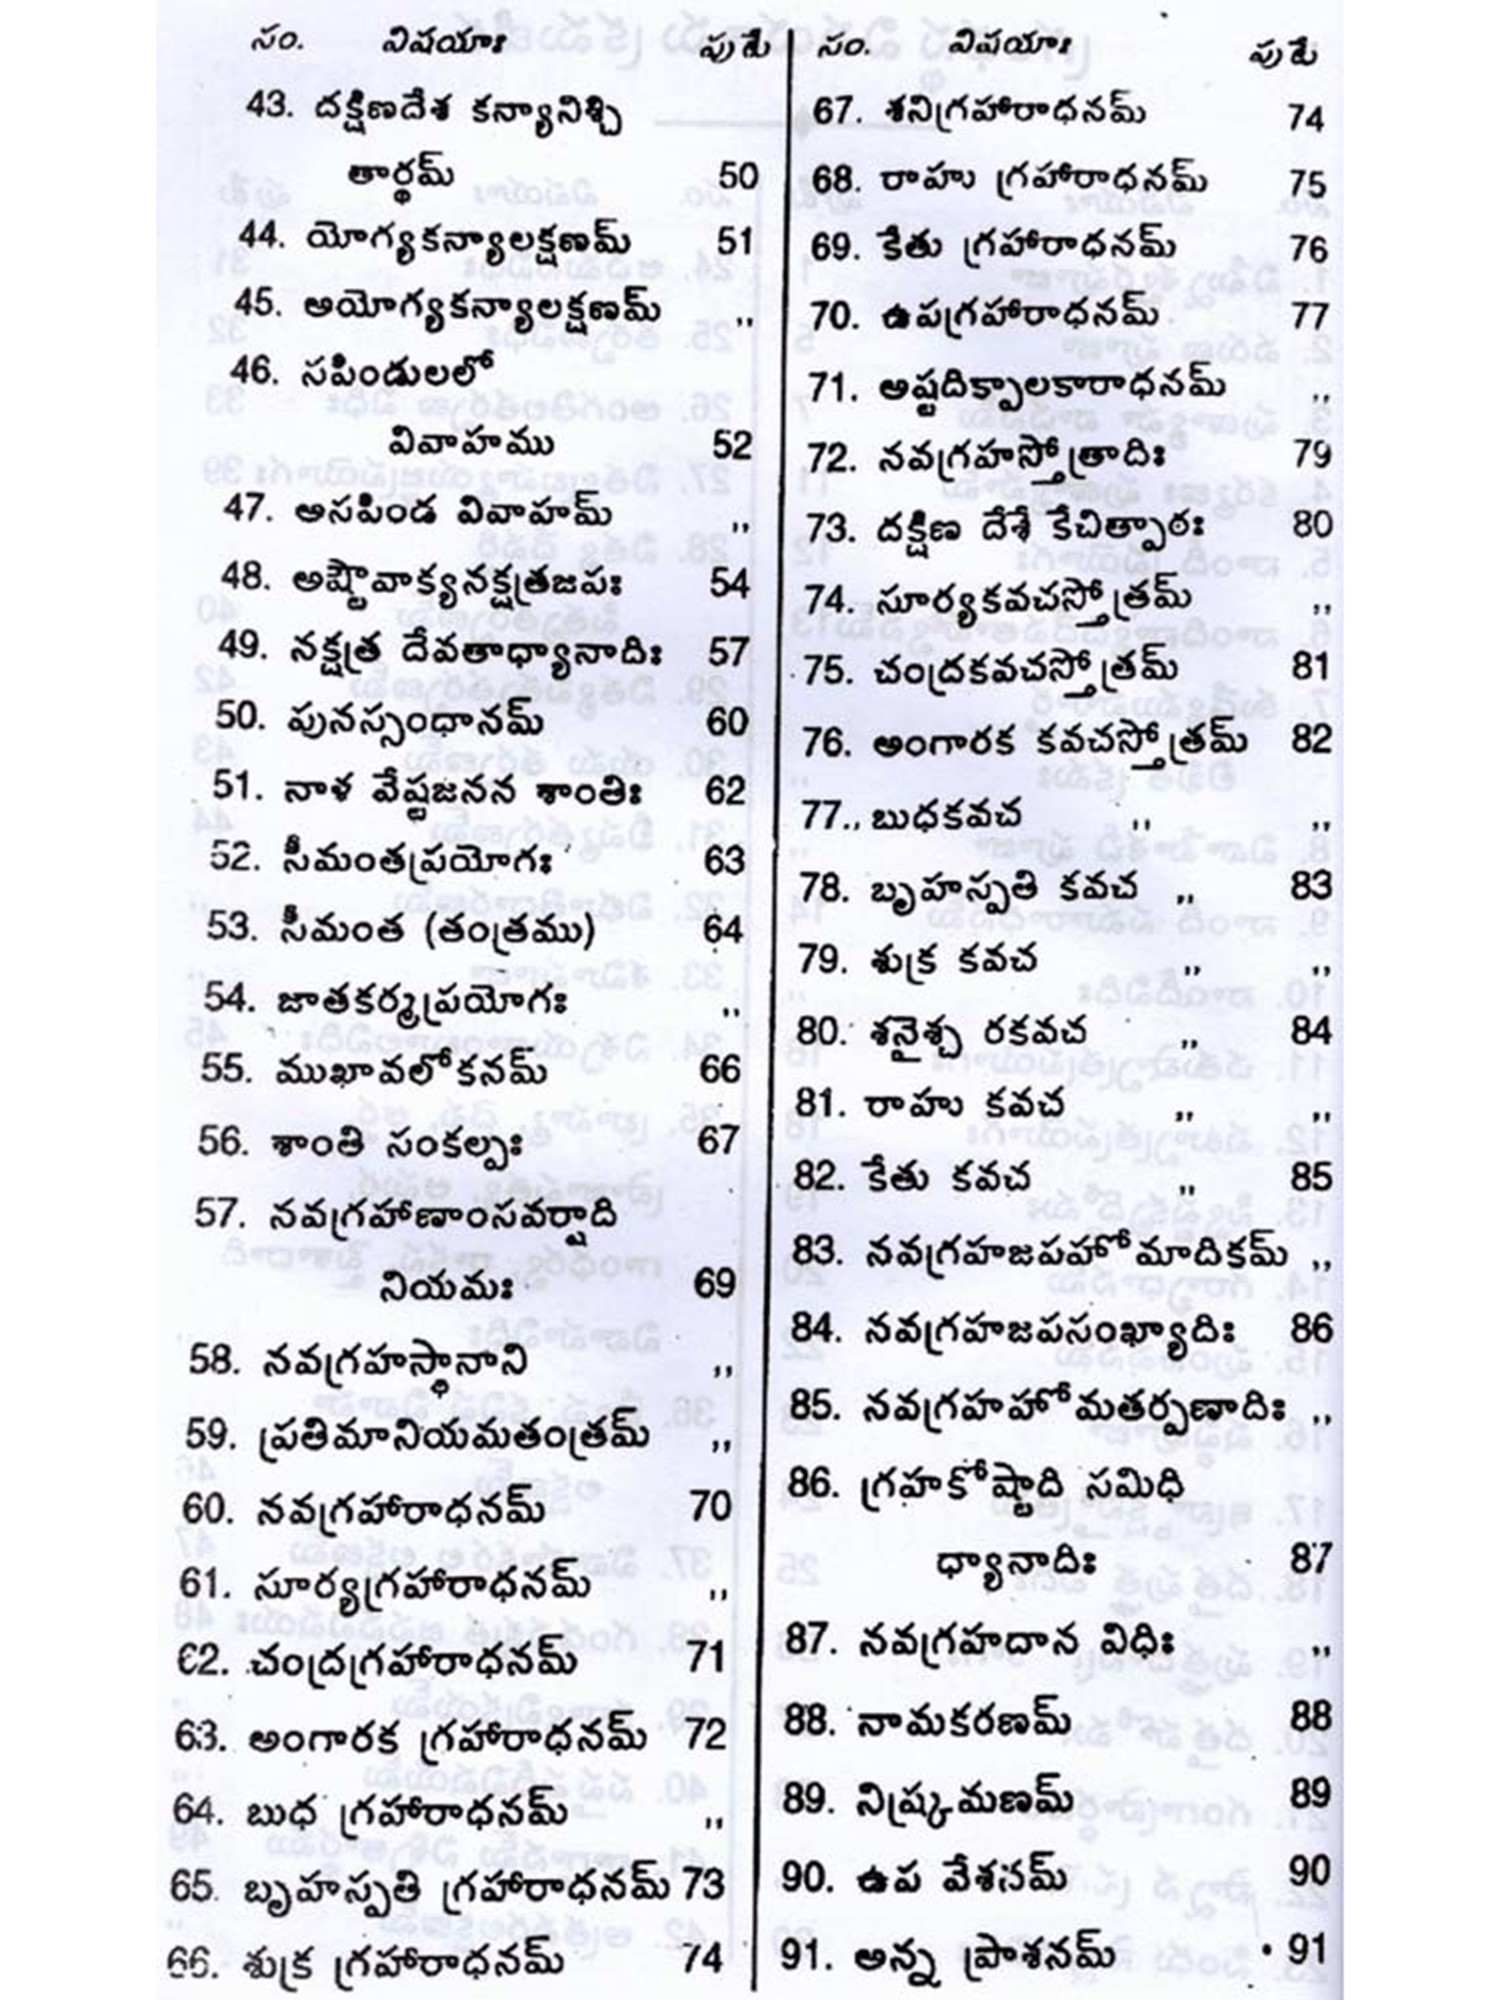 సం. విషయాః పుటే
43. దక్షిణదేశ కన్యానిశ్చి
తార్థమ్ 50
44. యోగ్యకన్యాలక్షణమ్ 51
45. అయోగ్యకన్యాలక్షణమ్ ,,
46. సపిండులలో
వివాహము 52
47. అసపిండ వివాహమ్ ,,
48. అష్టౌవాక్యనక్షత్రజపః 54
49. నక్షత్ర దేవతాధ్యానాదిః 57
50. పునస్సంధానమ్ 60
51. నాళ వేష్టజనన శాంతిః 62
52. సీమంతప్రయోగః 63
53. సీమంత (తంత్రము) 64
54. జాతకర్మప్రయోగః ,,
55. ముఖావలోకనమ్ 66
56. శాంతి సంకల్పః 67
57. నవగ్రహాణాంసవర్షాది
నియమః 69
58. నవగ్రహస్థానాని ,,
59. ప్రతిమానియమతంత్రమ్ ,,
60. నవగ్రహారాధనమ్ 70
61. సూర్యగ్రహారాధనమ్ ,,
62. చంద్రగ్రహారాధనమ్ 71
63. అంగారక గ్రహారాధనమ్ 72
64. బుధ గ్రహారాధనమ్ ,,
65. బృహస్పతి గ్రహారాధనమ్ 73
66. శుక్ర గ్రహారాధనమ్ 74
సం. విషయాః పుటే
67. శనిగ్రహారాధనమ్ 74
68. రాహు గ్రహారాధనమ్ 75
69. కేతు గ్రహారాధనమ్ 76
70. ఉపగ్రహారాధనమ్ 77
71. అష్టదిక్పాలకారాధనమ్ ,,
72. నవగ్రహస్తోత్రాదిః 79
73. దక్షిణ దేశే కేచిత్పాఠః 80
74. సూర్యకవచస్తోత్రమ్ ,,
75. చంద్రకవచస్తోత్రమ్ 81
76. అంగారక కవచస్తోత్రమ్ 82
77., బుధకవచ ,, ,,
78. బృహస్పతి కవచ ,, 83
79. శుక్ర కవచ ,, ,,
80. శనైశ్చ రకవచ ,, 84
81. రాహు కవచ ,, ,,
82. కేతు కవచ ,, 85
83. నవగ్రహజపహోమాదికమ్ ,,
84. నవగ్రహజపసంఖ్యాదిః 86
85. నవగ్రహహోమతర్పణాదిః ,,
86. గ్రహకోష్టాది సమిధి
ధ్యానాదిః 87
87. నవగ్రహదాన విధిః ,,
88. నామకరణమ్ 88
89. నిష్క్రమణమ్ 89
90. ఉప వేశనమ్ 90
91. అన్న ప్రాశనమ్ 91